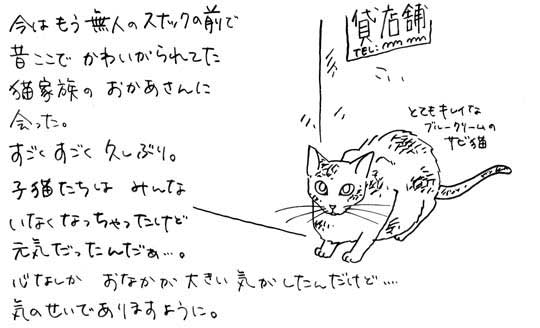 今はもう無人のスナックの前で
昔ここで かわいがられてた
猫家族の おかあさんに
会った。
すごくすごく久しぶり。
子猫たちは みんな
いなくなっちゃったけど
元気だったんだぁ…。
心なしか おなかが大きい気がしたんだけど……
気のせいでありますように。
貸店舗
TEL:
とてもキレイな
ブルークリームの
サビ猫